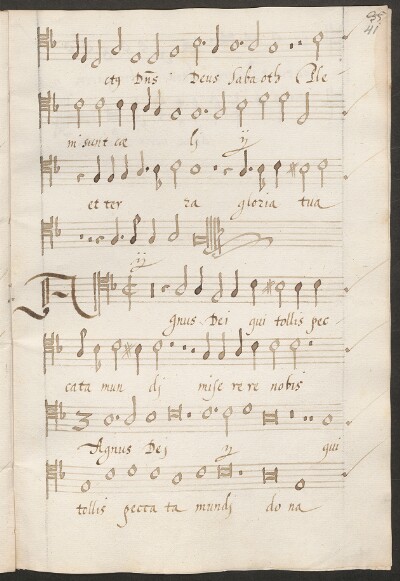 41
ctus Dñs Deus Sabaoth Ple
ni sunt cæ li ij
et ter ra gloria tua
ij
Agnus Dei qui tollis pec
cata mun di miserere nobis
Agnus Dei ij qui
tollis pecca ta mundi do na